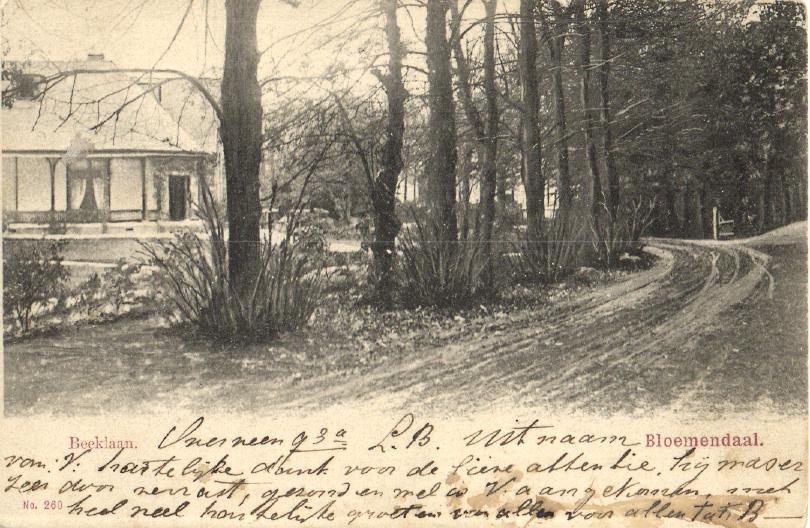 Beeklaan. Overveen 93a L.B. Uit naam Bloemendaal.
van V. hartelijke dank voor de lieve attentie, hij was er
zeer door verrast, gezond en wel is V. aangekomen, met
No. 260 heel veel hartelijke groeten van allen voor allen tat. B